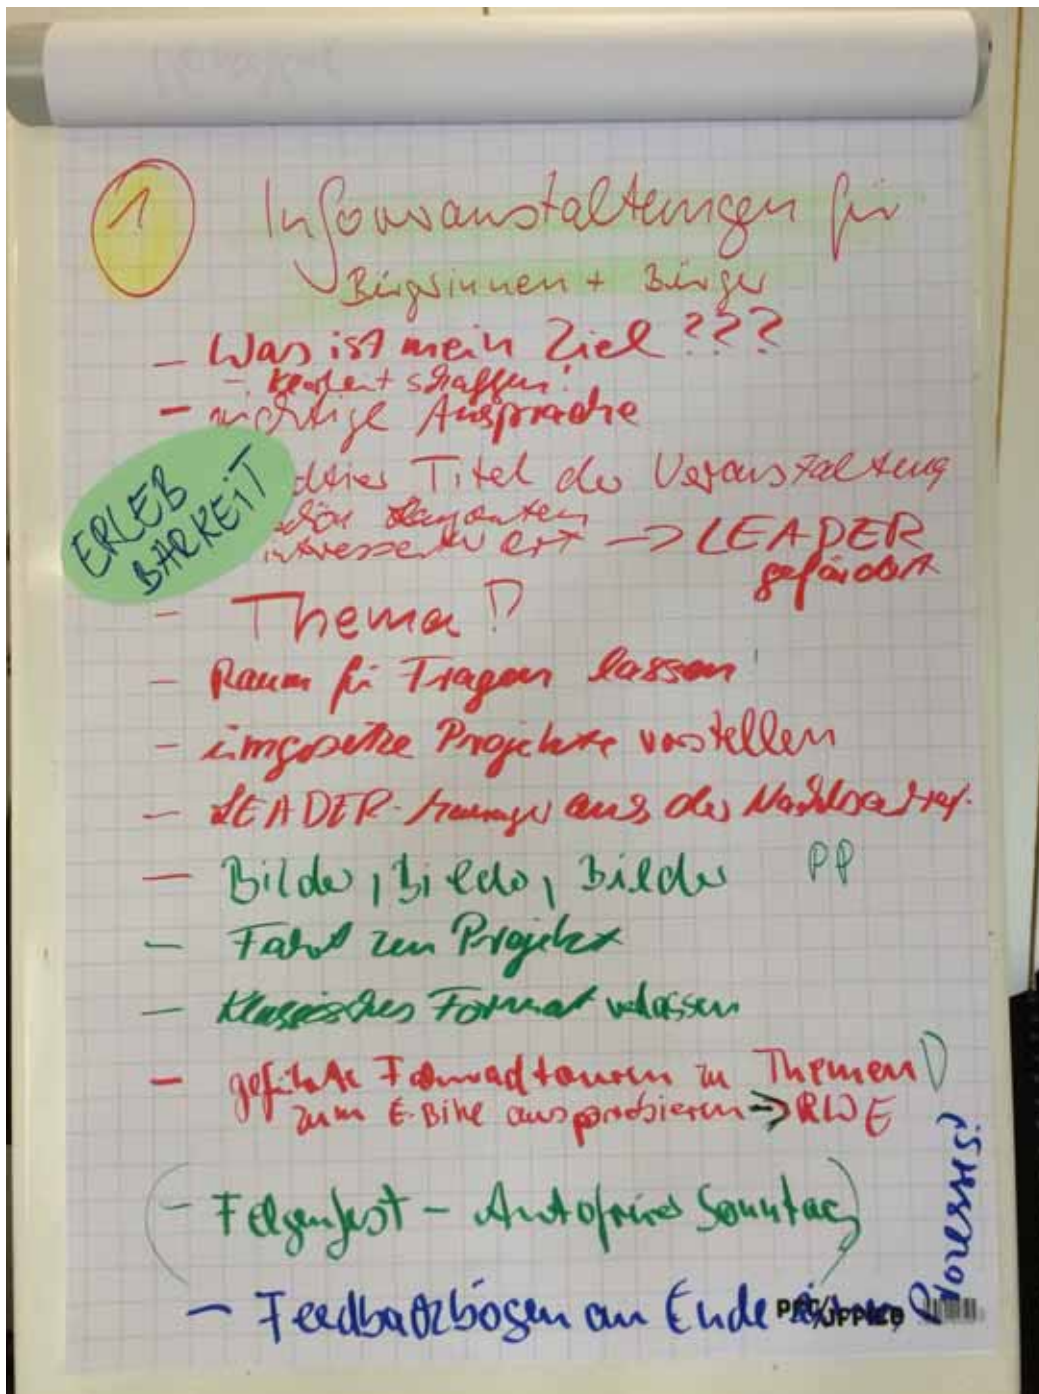 1
Infoveranstaltungen für
Bürgerinnen + Bürger
- Was ist mein Ziel ???
- Klarheit schaffen!
- richtige Ansprache
ERLEB
BARKEIT
Titel der Veranstaltung
→ LEADER
gefördert
- Thema !
- Raum für Fragen lassen!
- umgesetzte Projekte vorstellen
- LEADER-Manager aus der
- Bilder, Bilder, Bilder PP
- Fahrt zum Projekt
- Klassisches Format verlassen
- geführte Fahrradtouren zu Themen
zum E-Bike ausprobieren → RWE
(- Felgenfest - Autofreier Sonntag)
- Feedbackbögen am Ende
Prozesses